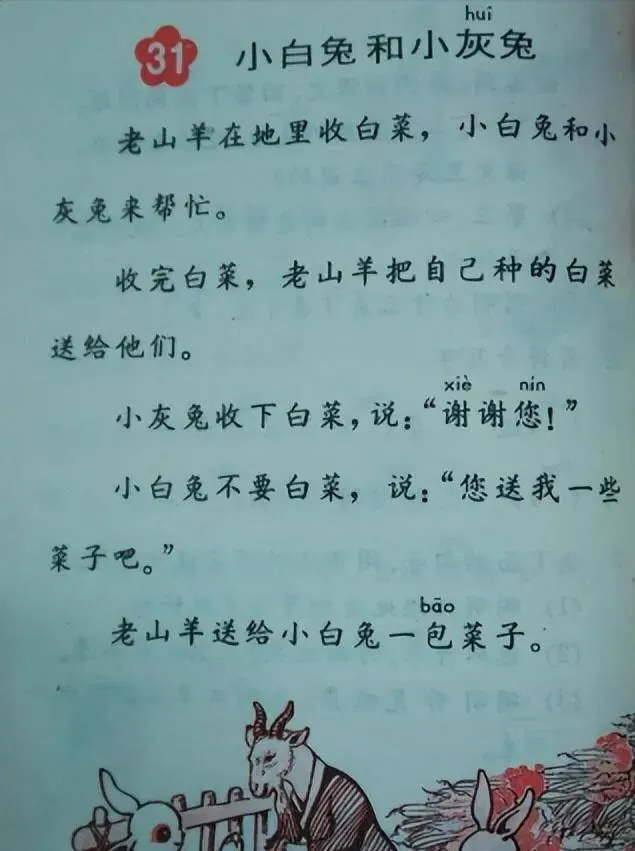 huī
31 小白兔和小灰兔
老山羊在地里收白菜，小白兔和小
灰兔来帮忙。
收完白菜，老山羊把自己种的白菜
送给他们。
xiè nín
小灰兔收下白菜，说：“谢谢您！”
小白兔不要白菜，说：“您送我一些
菜子吧。”
bāo
老山羊送给小白兔一包菜子。